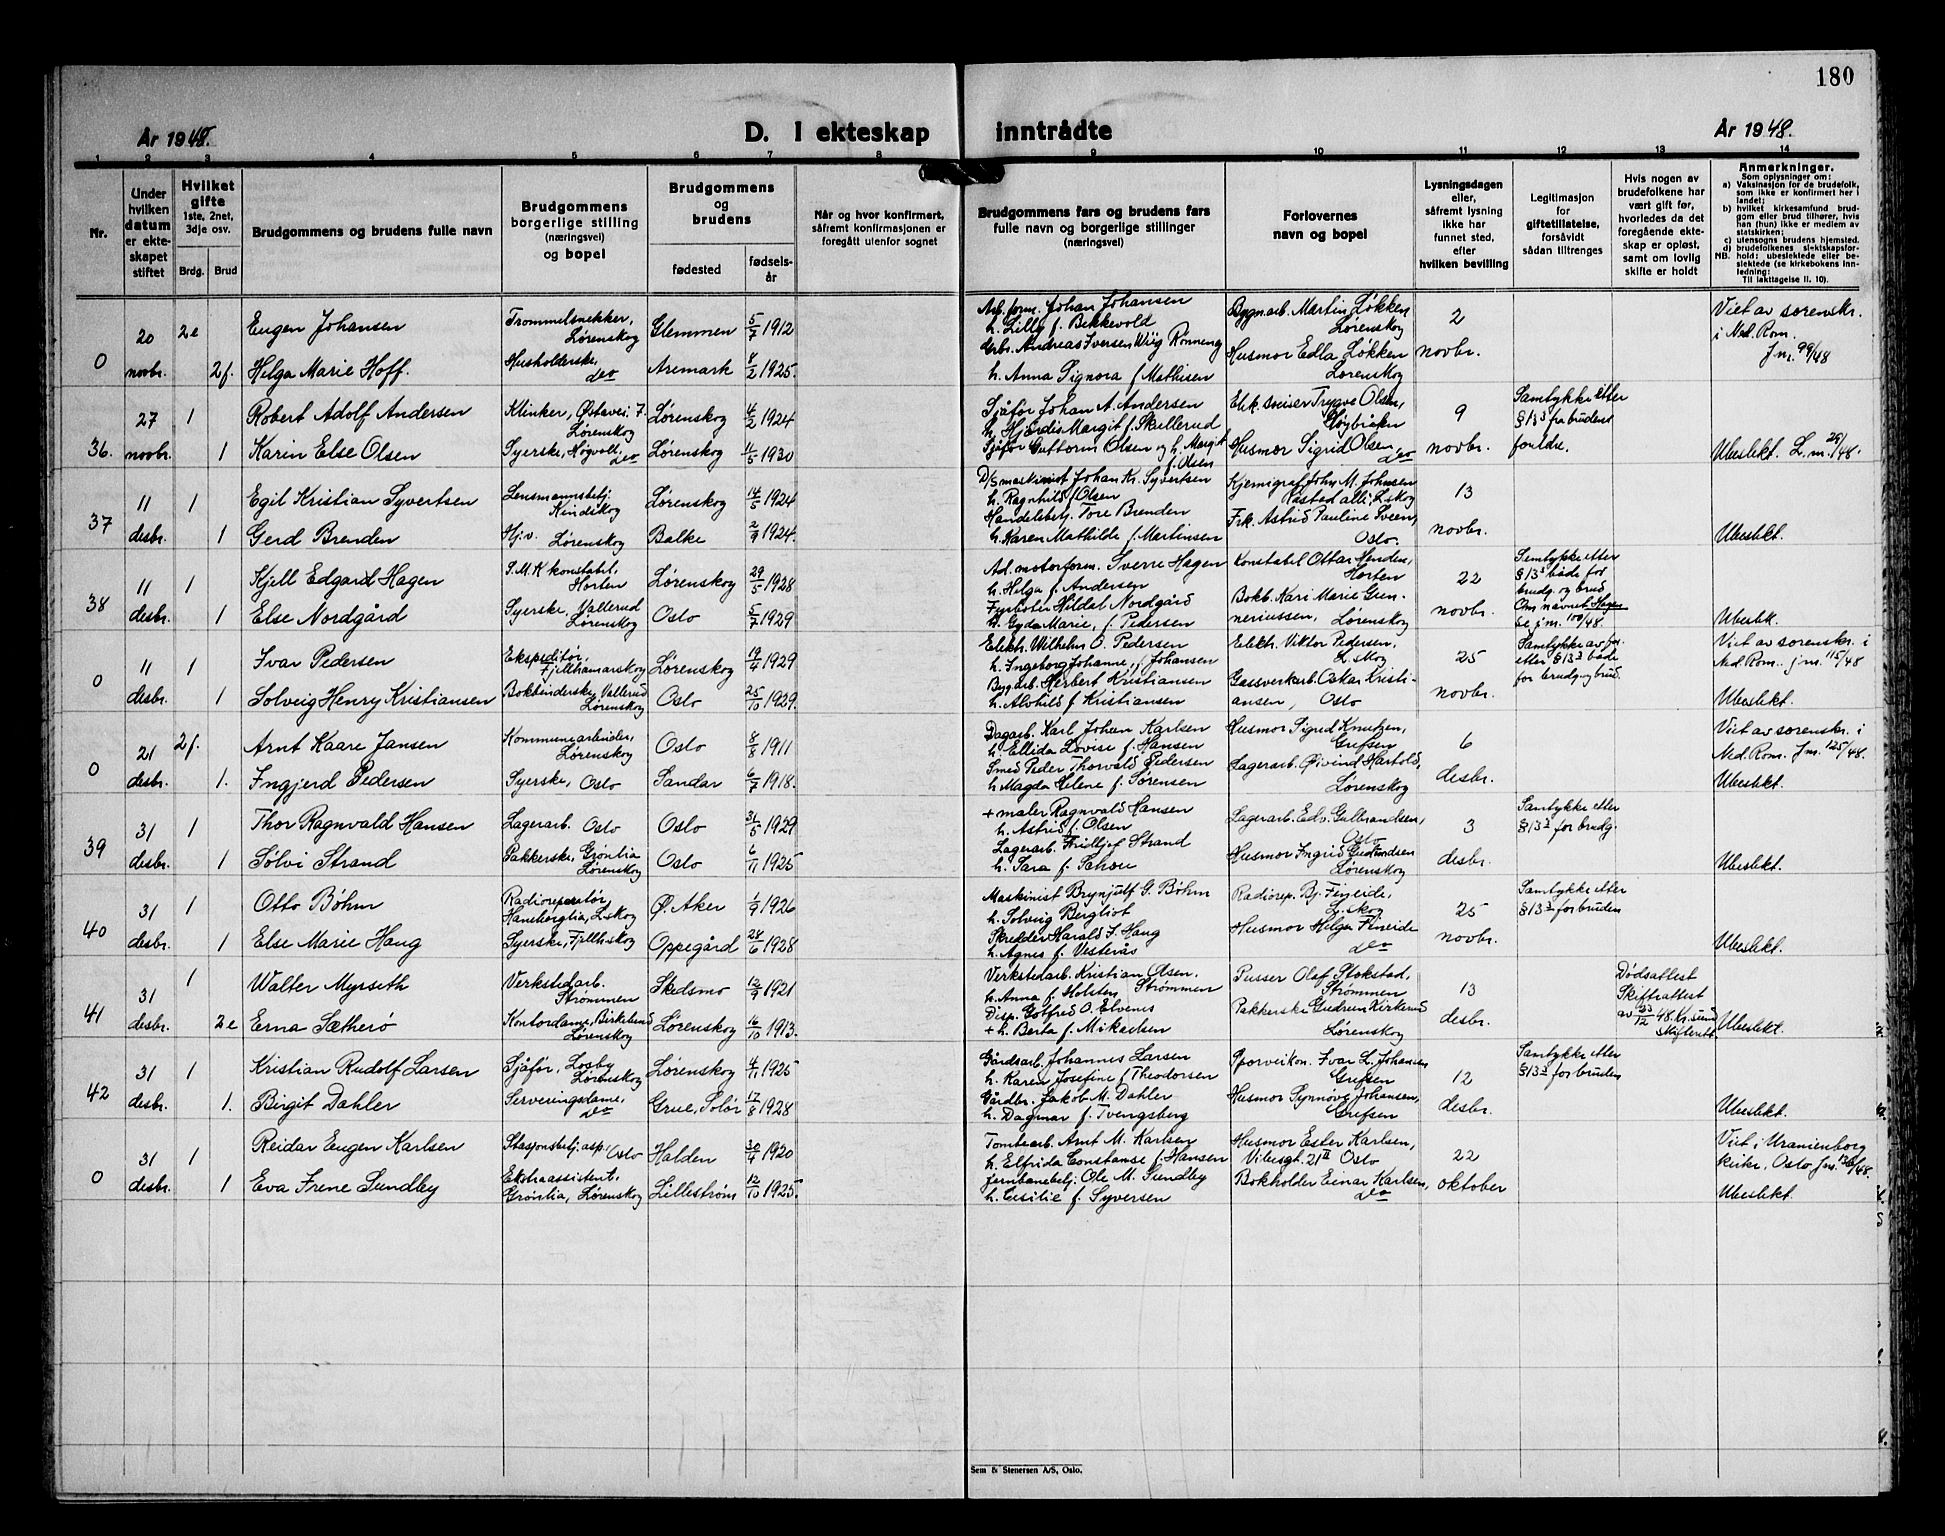 180
År 1948.
D. I ekteskap inntrådte
År 1948.
1 2 3 4 5 6 7 8 9 10 11 12 13 14
Nr.
Under hvilken datum er ekteskapet stiftet
Hvilket gifte 1ste, 2net, 3dje osv.
Brdg. Brud
Brudgommens og brudens fulle navn
Brudgommens borgerlige stilling (næringsvei) og bopel
Brudgommens og brudens
fødested
fødsels-år
Når og hvor konfirmert, såfremt konfirmasjonen er foregått utenfor sognet
Brudgommens fars og brudens fars fulle navn og borgerlige stillinger (næringsvei)
Forlovernes navn og bopel
Lysningsdagen eller, såfremt lysning ikke har funnet sted, efter hvilken bevilling
Legitimasjon for giftetillatelse, forsåvidt sådan tiltrenges
Hvis nogen av brudefolkene har vært gift før, hvorledes da det foregående ekteskap er opløst, samt om lovlig skifte er holdt
Anmerkninger.
Som oplysninger om:
a) Vaksinasjon for de brudefolk, som ikke er konfirmert her i landet;
b) hvilket kirkesamfund brudgom eller brud tilhører, hvis han (hun) ikke er medlem av statskirken;
c) utensogns brudens hjemsted.
d) brudefolkenes slektskapsforhold: ubeslektede eller beslektede (se kirkebokens innledning;
NB.
Til iakttagelse II. 10).
0 20 novbr. 2e Eugen Johansen Trommelsnekker, Lørenskog Glemmen 5/7 1912
2f. Helga Marie Hoff. Husholderske, do Aremark 8/2 1925.
Arb.form. Johan Johansen
h. Lilly f. Bekkevold
Grbr. Andreas Iversen Wiig Rønneng
h. Anna Signora f. Mathisen
Bygn.arb. Martin Løkken, Lørenskog
Husmor Edla Løkken Lørenskog
2 novbr.
Viet av sorenskr. i Ned. Rom. Jnr. 99/48
36. 27 novbr. 1 Robert Adolf Andersen Klinker, Østavei 7. Lørenskog Lørenskog 4/2 1924
1 Karin Else Olsen Syerske, Høgvoll, do Lørenskog 11/5 1930
Sjåfør Johan A. Andersen
h. Hjørdis Margit f. Skillerud
Sjåfør Guttorm Olsen og h. Margit f. Olsen
Elek. sveiser Trygve Olsen, Høybråten
Husmor Sigrid Olsen do
9 novbr.
Samtykke etter §13³ fra brudens foreldre.
Ubeslekt.
37 11 desbr. 1 Egil Kristian Syvertsen Lensmannsbetj. Lørenskog 14/5 1924
1 Gerd Brenden Hjv. Lørenskog Balke 2/9 1924.
D/S maskinist Johan Kr. Syvertsen
h. Ragnhild f. Olsen
Handelsbetj. Tore Brenden
h. Karen Mathilde f. Martinsen
Kjemigraf John M. Johnsen L.skog
Frk. Astrid Pauline Sveen, Oslo.
13 novbr.
Ubeslekt.
38 11 desbr. 1 Kjell Edgard Hagen S.M.K konstabel, Horten Lørenskog 29/5 1928
1 Else Nordgård Syerske, Vallerud Lørenskog Oslo 5/7 1929
Ad. motorform. Sverre Hagen
h. Helga f. Andersen
Fyrbøter Hildal Nordgård
h. Gyda Marie, f. Pedersen
Konstabel Ottar Henden, Horten
Bokb. Kari Marie Gunneriussen, Lørenskog
22 novbr.
Samtykke etter §13³ både for brudg. og brud
Om navnet Hagen se jnr. 100/48.
Ubeslk.
0 11 desbr. 1 Ivar Pedersen Ekspeditør, Fjellhamarskog Lørenskog 19/4 1929
1 Solveig Henry Kristiansen Bokbinderske, Vallerud Lørenskog Oslo 25/10 1929.
Elektr. Wilhelm O. Pedersen
h. Ingeborg Johanne, f. Johansen
Byg.arb. Herbert Kristiansen
h. Alvhild f. Kristiansen
Elektr. Viktor Pedersen, L.skog
Gassverkarb. Oskar Kristiansen, Oslo
25 novbr.
Samtykke av fm. etter §13³ både for brudg. og brud.
Viet av sorenskr. i Ned. Rom. jnr. 115/48
Ubeslekt.
0 21 desbr. 2f. Arnt Kaare Jansen Kommunearbeider, Lørenskog Oslo 8/8 1911
1. Ingjerd Pedersen Syerske, Oslo Sandar 6/7 1918.
Dagarb. Karl Johan Karlsen
h. Ellida Lovise f. Hansen
Smed Peder Thorvald Pedersen
h. Magda Helene f. Sørensen
Husmor Sigrid Knutzen, Grefsen
Lagerarb. Øivind Hartold, Lørenskog
6 desbr.
Viet av sorenskr. i Ned. Rom. Jnr. 125/48.
Ubeslekt.
39 31 desbr. 1 Thor Ragnvald Hansen Lagerarb. Oslo Oslo 31/5 1929
1 Sølvi Strand Pakkerske, Grønlia Lørenskog Oslo 6/11 1925
+ maler Ragnvald Hansen
h. Astrid f. Olsen
Lagerarb. Fridtjof Strand
h. Sara f. Sahou
Lagerarb. Edv. Gulbrandsen, Oslo
Husmor Ingrid Lørenskog
3 desbr.
Samtykke etter §13³ for brudg.
Ubeslekt.
40 31 desbr. 1 Otto Bøhm Radioreperatør, Haneborglia, L.skog Ø. Aker 1/9 1926
1 Else Marie Haug Syerske, Fjellh.skog Oppegård 28/6 1928
Maskinist Brynjulf G. Bøhm
h. Solveig Bergliot
Skredder Harald S. Haug
h. Agnes f. Vesterås
Radiorep. Bj. Fineide, L.skog
Husmor Helga Fineide do
25 novbr.
Samtykke etter §13³ for bruden
Ubeslekt.
41 31 desbr. 1 Walter Myrseth Verkstedarb. Strømmen Skedsmo 12/9 1921
2e Erna Sætherø Kontordame, Birkelund Lørenskog Lørenskog 16/10 1913.
Verkstedarb. Kristian Olsen, Strømmen
h. Anna f. Holsten
Disp. Gotfred O. Elvenes
+ h. Berta f. Mikaelsen
Pusser Olaf Stokstad, Strømmen
Pakkerske Gudrun Kirkerud Lørenskog
13 desbr.
Dødsattest Skifteattest av 23/12 48. Kr.sund skifterett.
Ubeslekt.
42 31 desbr. 1 Kristian Rudolf Larsen Sjåfør, Losby Lørenskog Lørenskog 4/11 1925
1. Birgit Dahler Serveringsdame, do Grue, Solør 17/8 1928
Gårdsarb. Johannes Larsen
h. Karen Josefine f. Theodorsen
Gårdbr. Jakob M. Dahler
h. Dagmar f. Tvengsberg
Sporveikon. Ivar L. Johansen Grefsen
Husmor Synnøve Johansen, Grefsen
12 desbr.
Samtykke etter §13³ for bruden
Ubeslekt.
0 31 desbr. 1 Reidar Eugen Karlsen Stasjonsbetj. asp. Oslo Halden 30/4 1920
1 Eva Irene Sundby Ekstraassistent, Grønlia, Lørenskog Lillestrøm 12/10 1925.
Tomtearb. Arnt M. Karlsen
h. Elfrida Constanse f. Hansen
Jernbanebetj. Ole M. Sundby
h. Cecilie f. Syversen
Husmor Ester Karlsen, Vibesgt. 21 II Oslo
Bokholder Einar Karlsen, do
22 oktober
Viet i Uranienborg kirke, Oslo, Jnr. 126/48.
Ubeslekt.
Sem & Stenersen A/S, Oslo.